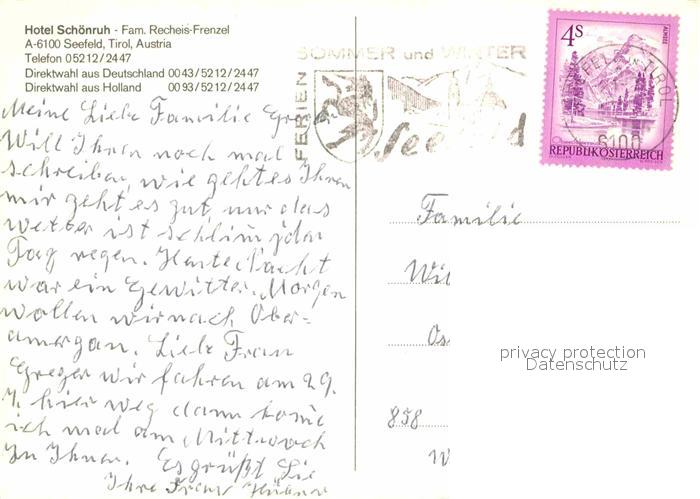 Hotel Schönruh - Fam. Recheis-Frenzel
A-6100 Seefeld, Tirol, Austria
Telefon 05212/2447
Direktwahl aus Deutschland 0043/5212/2447
Direktwahl aus Holland 0093/5212/2447
Meine Liebe Familie
Will Ihnen noch mal
schreiben, wie geht es Ihnen
mir geht es gut, nur das
Wetter ist schlim jdn
Tag regen. Heute Nacht
war ein Gewitter. Morgen
wollen wir nach Ober=
amergan. Liebe Frau
Greger wir fahren am 29.
hier weg dann kome
ich mal am Mittwoch
zu Ihnen. Es grüßt Sie
Ihre Frau Hübner
FERIEN
SOMMER und WINTER
Seefeld
4S
ALMSEE
REPUBLIK ÖSTERREICH
TIROL
6100
Familie
Wil
Os
858
W
privacy protection
Datenschutz